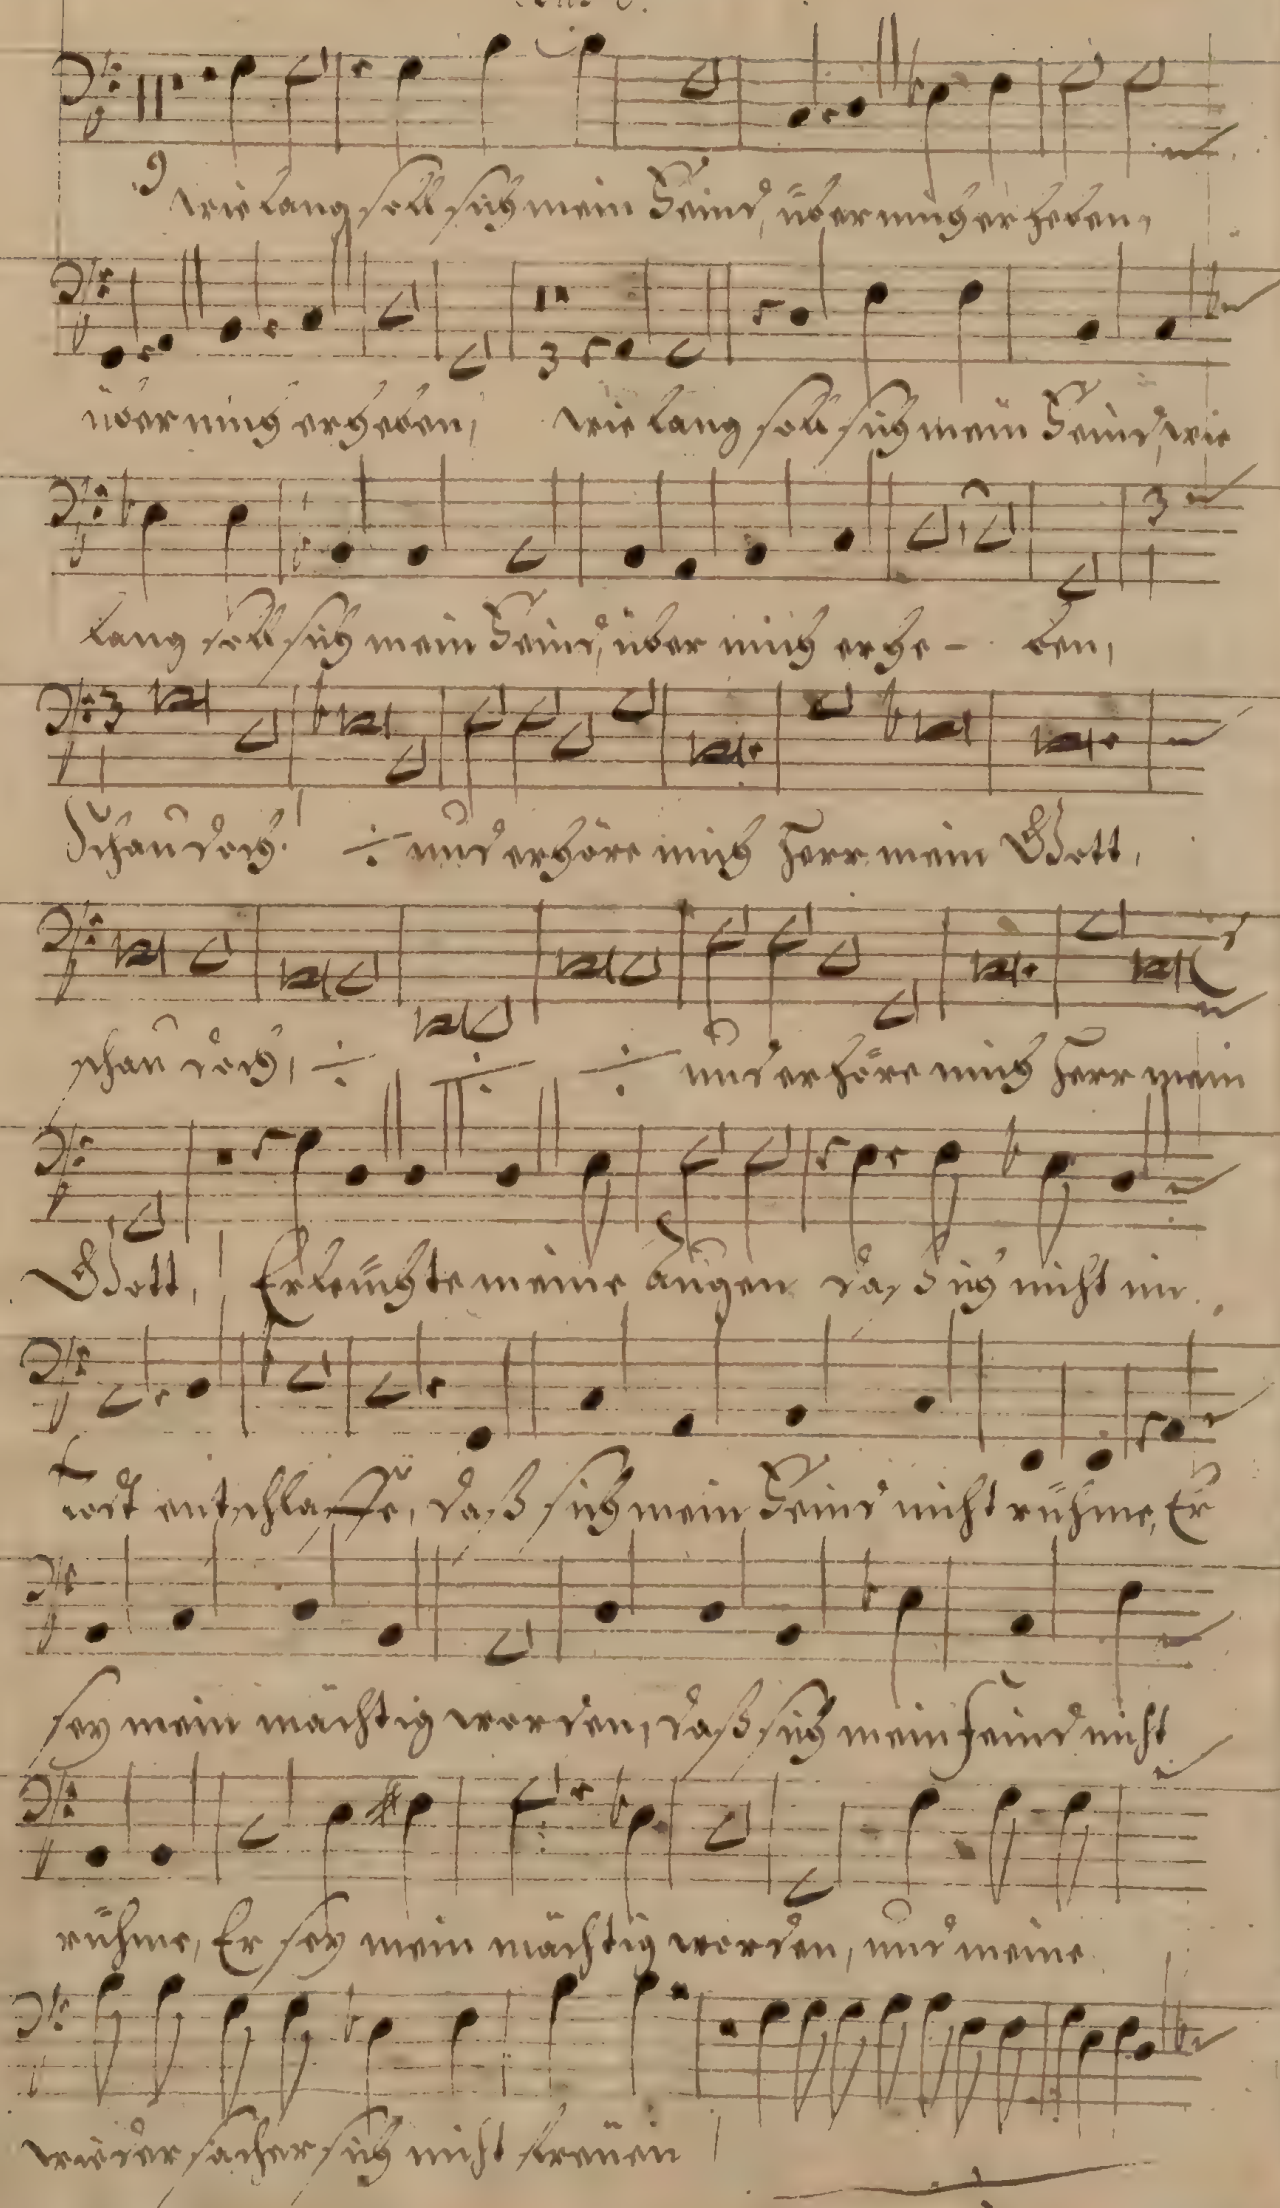 wie lang soll sich mein Feind, über mich erheben,
über mich erheben, wie lang soll sich mein Feind, wie
lang soll sich mein Feind, über mich erhe - ben,
Schau doch! ÷ und erhöre mich Herr mein Gott,
schau doch, ÷ ÷ ÷ und erhöre mich Herr mein
Gott, Erleüchte meine Augen daß ich nicht im
todt entschlaffe, daß sich mein Feind nicht rühme, Er
sey mein mächtig worden, daß sich mein feind nicht
rühme, Er sey mein mächtig worden, und meine
wiedersacher sich nicht freüen